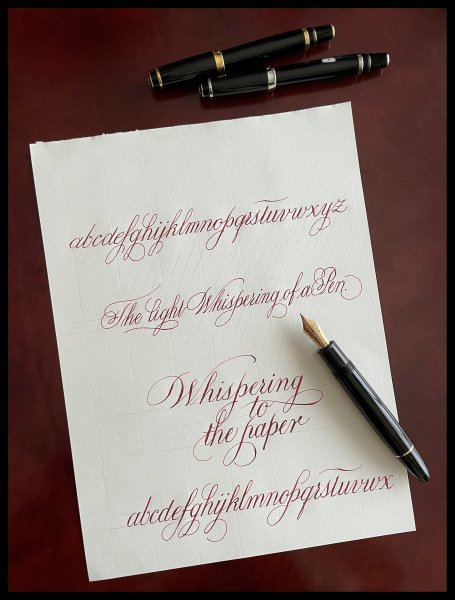 abcdefghijklmnopqrstuvwxyz
The light Whispering of a Pen.
Whispering
to
the paper
abcdefghijklmnopqrstuvwx